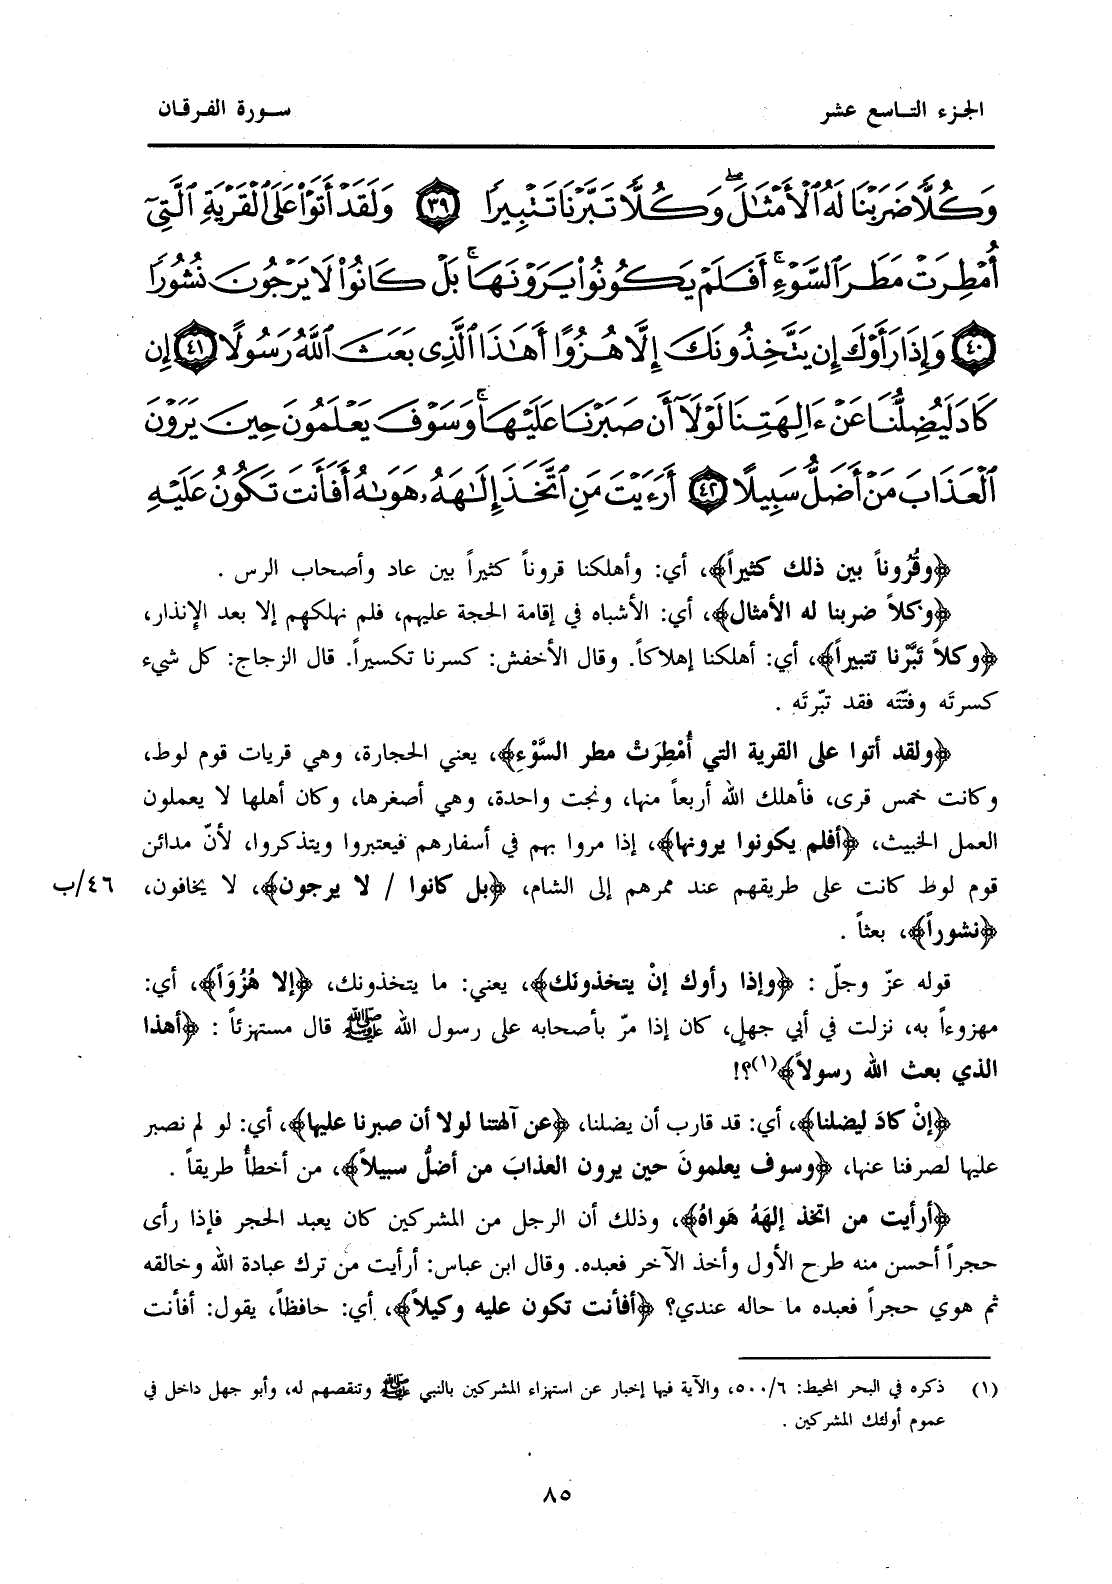 الجزء التاسع عشر
سورة الفرقان
وَكُلًّا ضَرَبْنَا لَهُ ٱلْأَمْثَٰلَ ۖ وَكُلًّا تَبَّرْنَا تَتْبِيرًا ﴿٣٩﴾ وَلَقَدْ أَتَوْا۟ عَلَى ٱلْقَرْيَةِ ٱلَّتِىٓ
أُمْطِرَتْ مَطَرَ ٱلسَّوْءِ ۚ أَفَلَمْ يَكُونُوا۟ يَرَوْنَهَا ۚ بَلْ كَانُوا۟ لَا يَرْجُونَ نُشُورًا
﴿٤٠﴾ وَإِذَا رَأَوْكَ إِن يَتَّخِذُونَكَ إِلَّا هُزُوًا أَهَٰذَا ٱلَّذِى بَعَثَ ٱللَّهُ رَسُولًا ﴿٤١﴾ إِن
كَادَ لَيُضِلُّنَا عَنْ ءَالِهَتِنَا لَوْلَآ أَن صَبَرْنَا عَلَيْهَا ۚ وَسَوْفَ يَعْلَمُونَ حِينَ يَرَوْنَ
ٱلْعَذَابَ مَنْ أَضَلُّ سَبِيلًا ﴿٤٢﴾ أَرَءَيْتَ مَنِ ٱتَّخَذَ إِلَٰهَهُۥ هَوَىٰهُ أَفَأَنتَ تَكُونُ عَلَيْهِ
﴿وقُرُوناً بين ذلك كثيراً﴾، أي: وأهلكنا قروناً كثيراً بين عاد وأصحاب الرس .
﴿وكلاً ضربنا له الأمثال﴾، أي: الأشباه في إقامة الحجة عليهم، فلم نهلكهم إلا بعد الإنذار،
﴿وكلاً تَبَّرنا تتبيراً﴾، أي: أهلكنا إهلاكاً. وقال الأخفش: كسرنا تكسيراً. قال الزجاج: كل شيء
كسرتَه وفتّته فقد تبّرتَه .
﴿ولقد أتوا على القرية التي أُمْطِرَتْ مطر السَّوْءِ﴾، يعني الحجارة، وهي قريات قوم لوط،
وكانت خمس قرى، فأهلك الله أربعاً منها، ونجت واحدة، وهي أصغرها، وكان أهلها لا يعملون
العمل الخبيث، ﴿أفلم يكونوا يرونها﴾، إذا مروا بهم في أسفارهم فيعتبروا ويتذكروا، لأنّ مدائن
قوم لوط كانت على طريقهم عند ممرهم إلى الشام، ﴿بل كانوا / لا يرجون﴾، لا يخافون، ٤٦/ب
﴿نشوراً﴾، بعثاً .
قوله عزّ وجلّ : ﴿وإذا رأوك إنْ يتخذونَك﴾، يعني: ما يتخذونك، ﴿إلا هُزُوَاً﴾، أي:
مهزوءاً به، نزلت في أبي جهلٍ، كان إذا مرّ بأصحابه على رسول الله ﷺ قال مستهزئاً : ﴿أهذا
الذي بعث الله رسولاً﴾(١)؟!
﴿إنْ كادَ ليضلنا﴾، أي: قد قارب أن يضلنا، ﴿عن آلهتنا لولا أن صبرنا عليها﴾، أي: لو لم نصبر
عليها لصرفنا عنها، ﴿وسوف يعلمونَ حين يرون العذابَ من أضلُّ سبيلاً﴾، من أخطأُ طريقاً .
﴿أرأيت من اتخذ إلهَهُ هَواهُ﴾، وذلك أن الرجل من المشركين كان يعبد الحجر فإذا رأى
حجراً أحسن منه طرح الأول وأخذ الآخر فعبده. وقال ابن عباس: أرأيت من ترك عبادة الله وخالقه
ثم هوي حجراً فعبده ما حاله عندي؟ ﴿أفأنت تكون عليه وكيلاً﴾، أي: حافظاً، يقول: أفأنت
(١) ذكره في البحر المحيط: ٥٠٠/٦، والآية فيها إخبار عن استهزاء المشركين بالنبي ﷺ وتنقصهم له، وأبو جهل داخل في
عموم أولئك المشركين .
٨٥